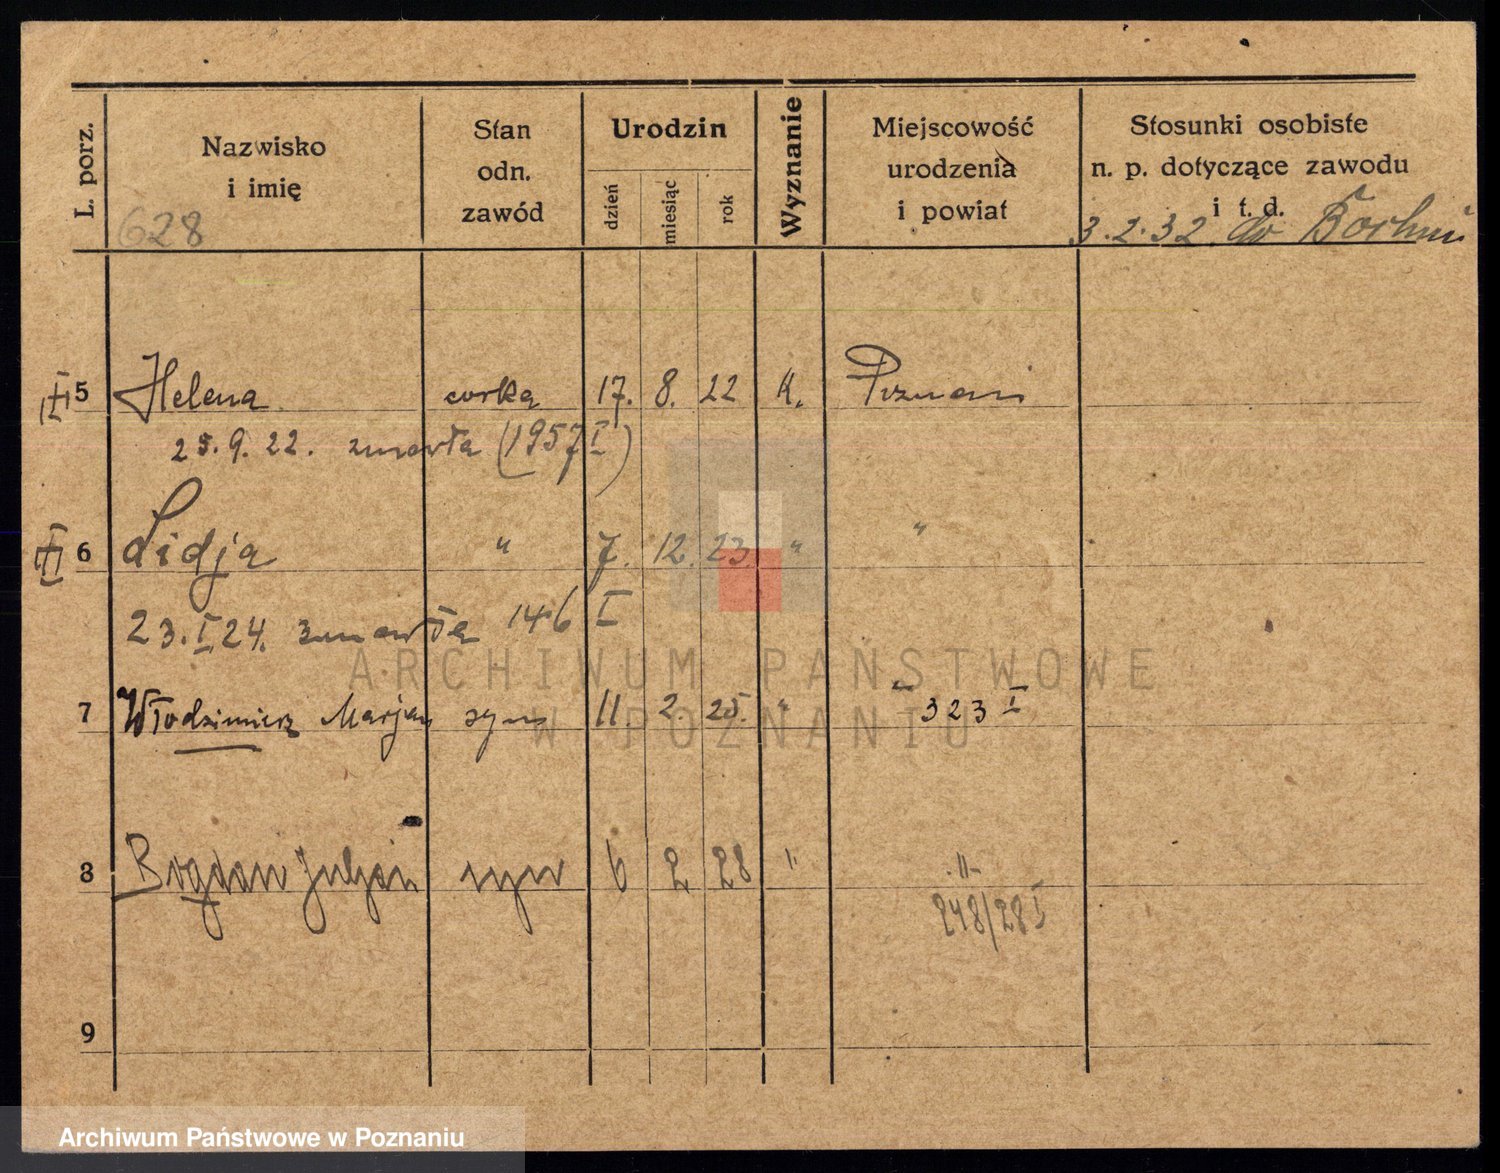 L. porz.
Nazwisko
i imię
Stan
odn.
zawód
Urodzin
dzień
miesiąc
rok
Wyznanie
Miejscowość
urodzenia
i powiat
Stosunki osobiste
n. p. dotyczące zawodu
i t. d.
628
3.2.32. do Bochni
5 Helena córka 17. 8. 22 K. Poznań
25.9.22. zmarła (1957 I)
6 Lidja " 7. 12. 23. " "
23.I.24. zmarła 146 I
7 Włodzimierz Marjan syn 11. 2. 25. " "
323 I
8 Bogdan Juljan syn 6 2 28 " "
248/28 I
9
ARCHIWUM PAŃSTWOWE
W POZNANIU
Archiwum Państwowe w Poznaniu